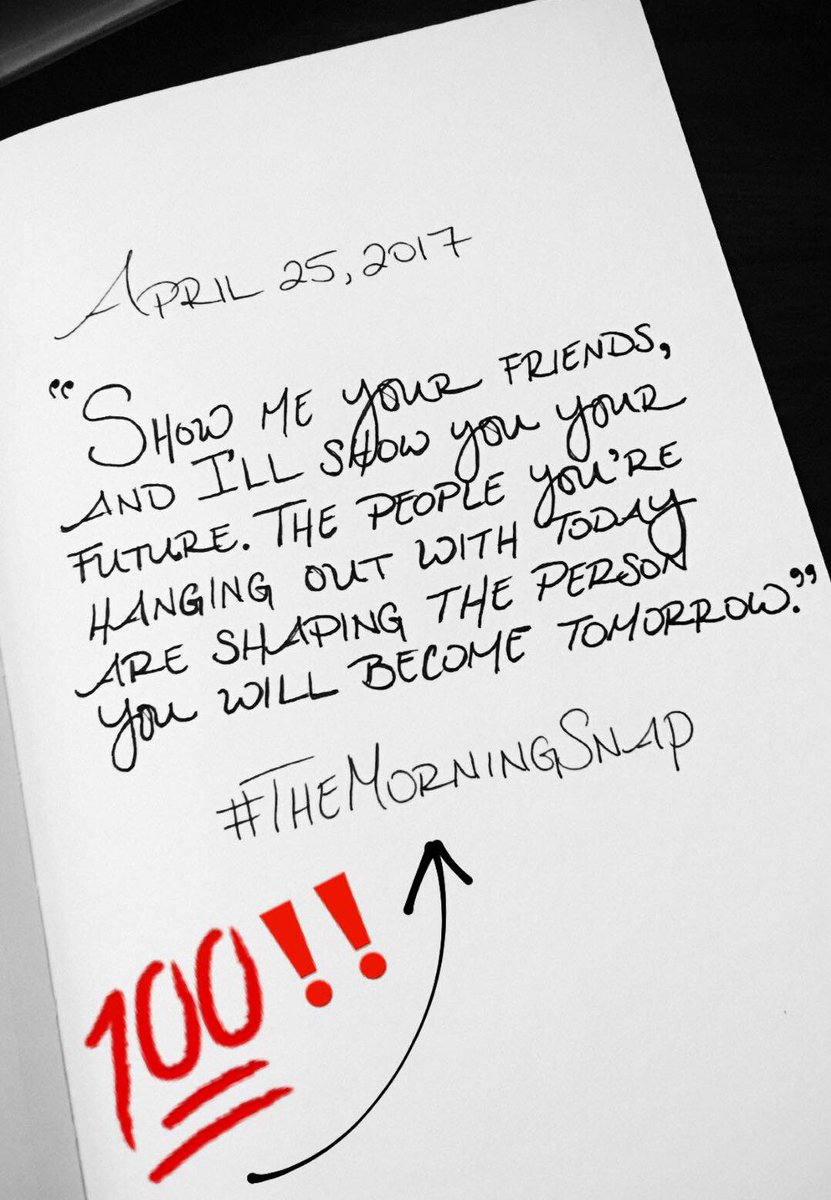 April 25, 2017
“Show me your friends,
and I'll show you your
future. The people you're
hanging out with today
are shaping the person
you will become tomorrow.”
#TheMorningSnap
💯‼️